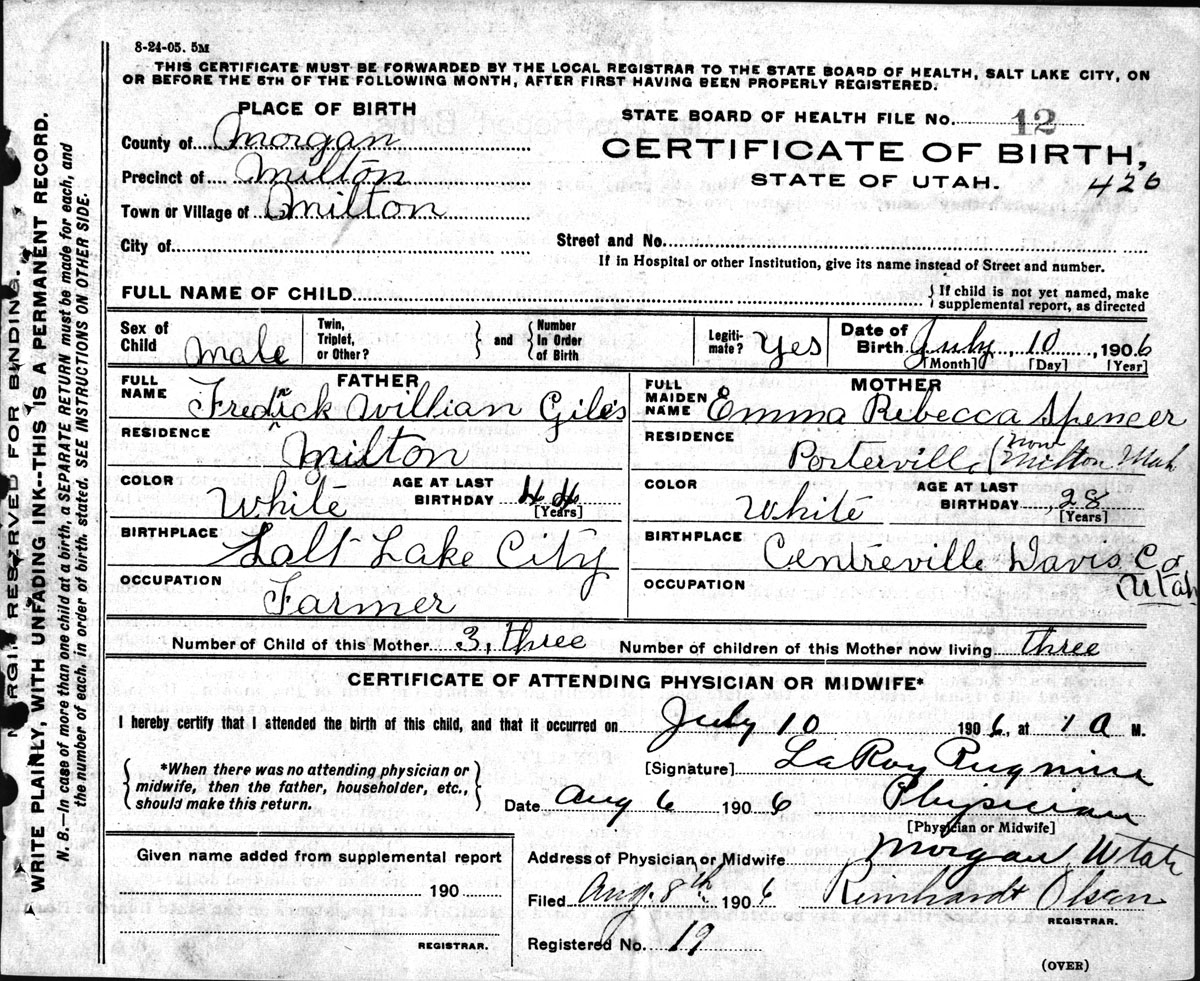 8-24-05. 5M
THIS CERTIFICATE MUST BE FORWARDED BY THE LOCAL REGISTRAR TO THE STATE BOARD OF HEALTH, SALT LAKE CITY, ON
OR BEFORE THE 5TH OF THE FOLLOWING MONTH, AFTER FIRST HAVING BEEN PROPERLY REGISTERED.
PLACE OF BIRTH
County of Morgan
Precinct of Milton
Town or Village of Milton
City of
STATE BOARD OF HEALTH FILE No. 12
CERTIFICATE OF BIRTH,
STATE OF UTAH. 426
Street and No.
If in Hospital or other Institution, give its name instead of Street and number.
FULL NAME OF CHILD
If child is not yet named, make
supplemental report, as directed
Sex of Child Male
Twin, Triplet, or Other?
and
Number In Order of Birth
Legiti-mate? Yes
Date of Birth July, 10, 1906
[Month] [Day] [Year]
FATHER
FULL NAME Fredrick Willian Giles
RESIDENCE Milton
COLOR White AGE AT LAST BIRTHDAY 44 [Years]
BIRTHPLACE Salt Lake City
OCCUPATION Farmer
MOTHER
FULL MAIDEN NAME Emma Rebecca Spencer
RESIDENCE Porterville (now Milton Utah
COLOR White AGE AT LAST BIRTHDAY 28 [Years]
BIRTHPLACE Centreville Davis Co Utah
OCCUPATION
Number of Child of this Mother 3, three Number of children of this Mother now living three
CERTIFICATE OF ATTENDING PHYSICIAN OR MIDWIFE*
I hereby certify that I attended the birth of this child, and that it occurred on July 10 1906, at 1 A M.
*When there was no attending physician or
midwife, then the father, householder, etc.,
should make this return.
[Signature] LaRoy
Date Aug 6 1906 Physician
[Physician or Midwife]
Given name added from supplemental report
190
REGISTRAR.
Address of Physician or Midwife Morgan Utah
Filed Aug. 8th 1906 Reinhardt Olsen
REGISTRAR.
Registered No. 19
(OVER)
MARGIN RESERVED FOR BINDING.
WRITE PLAINLY, WITH UNFADING INK--THIS IS A PERMANENT RECORD.
N. B.—In case of more than one child at a birth, a SEPARATE RETURN must be made for each, and
the number of each, in order of birth, stated. SEE INSTRUCTIONS ON OTHER SIDE.